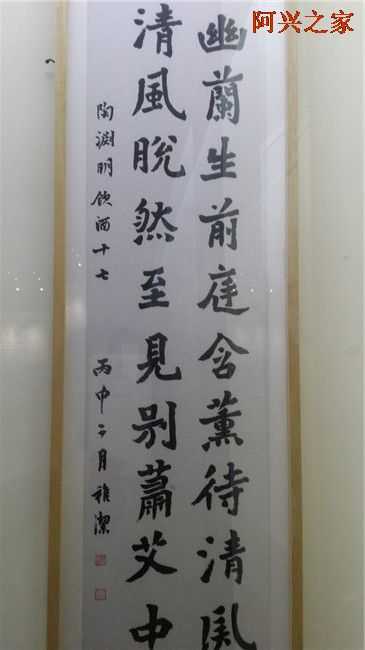 阿兴之家
幽蘭生前庭含薰待清風
清風脫然至見別蕭艾中
陶淵明飲酒十七
丙申二月雅潔